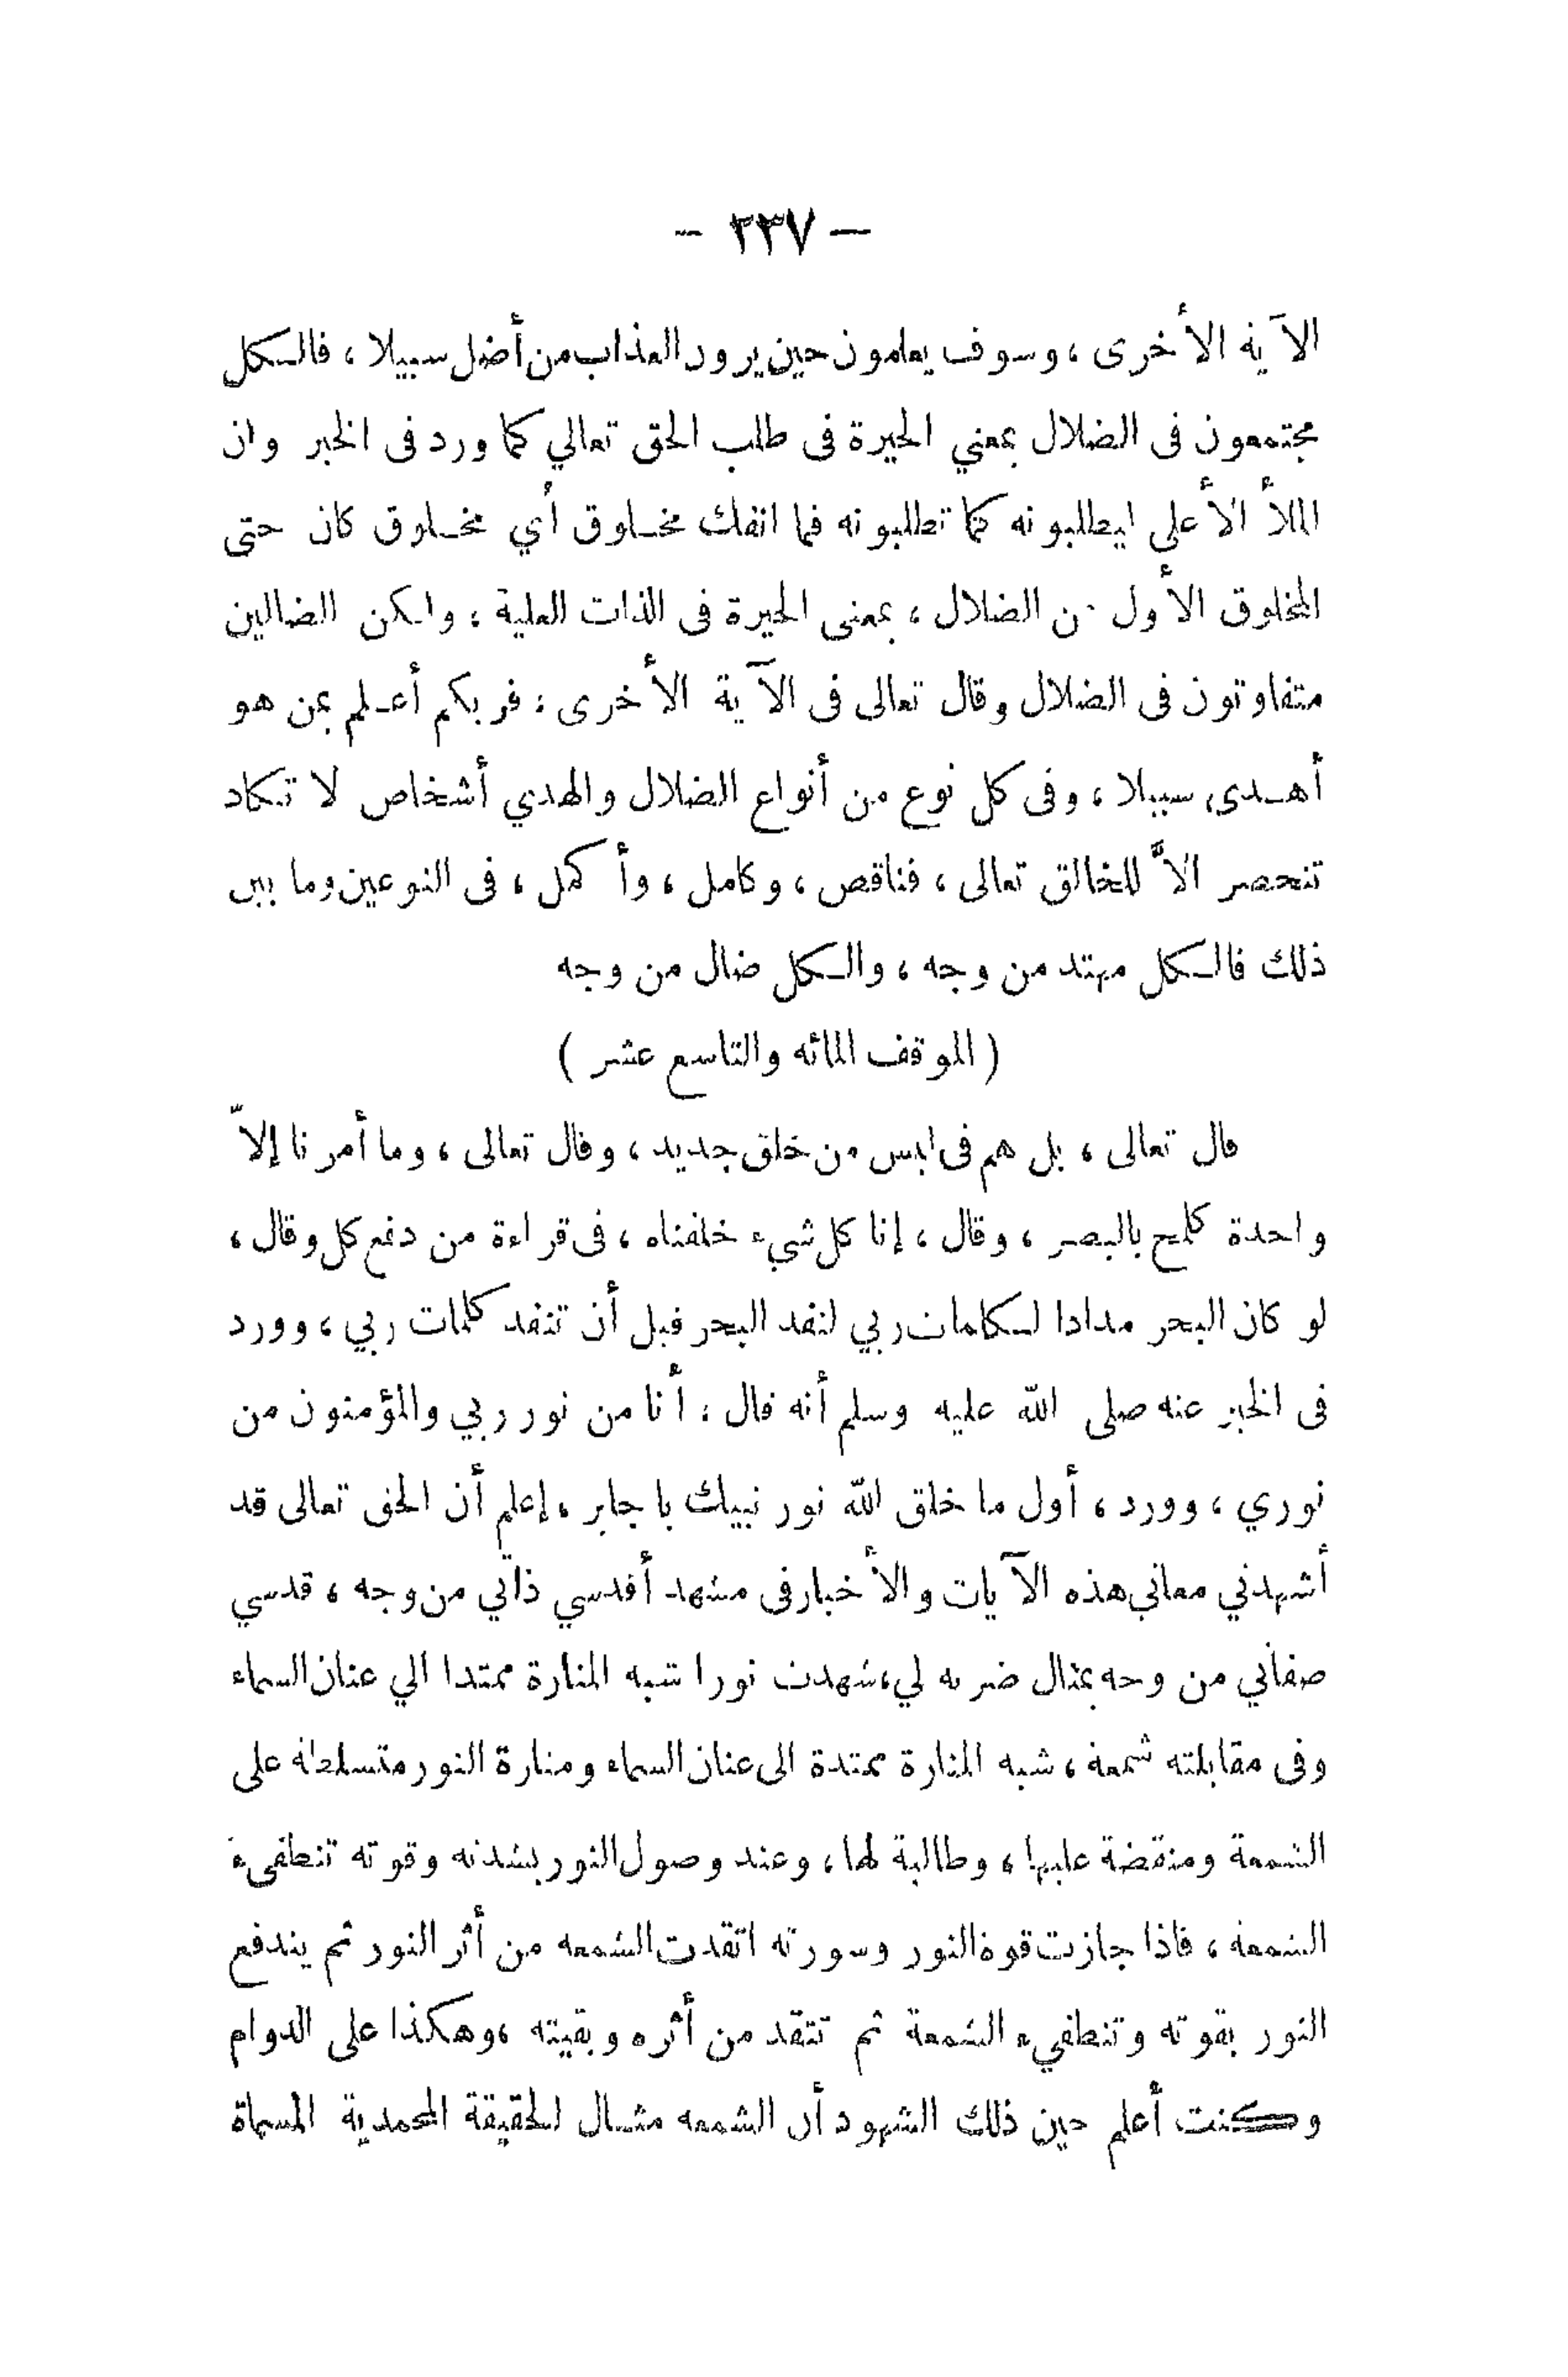 — ٢٣٧ —
الآية الأخرى ، وسوف يعلمون حين يرون العذاب من أضل سبيلا ، فالكل
مجتمعون فى الضلال بمعني الحيرة فى طلب الحق تعالي كما ورد فى الخبر وان
الملأ الأعلي ليطلبونه كما تطلبونه فما انفك مخلوق أي مخلوق كان حتى
المخلوق الأول من الضلال ، بمعنى الحيرة فى الذات العلية ، ولكن الضالين
متفاوتون فى الضلال وقال تعالى فى الآية الأخرى : فربكم أعلم بمن هو
أهدى سبيلا ، وفى كل نوع من أنواع الضلال والهدي أشخاص لا تكاد
تنحصر الاَّ للخالق تعالى ، فناقص ، وكامل ، وأكمل ، فى النوعين وما بين
ذلك فالكل مهتد من وجه ، والكل ضال من وجه
( الموقف المائه والتاسع عشر )
قال تعالى ، بل هم فى لبس من خلق جديد ، وقال تعالى ، وما أمرنا إلاّ
واحدة كلمح بالبصر ، وقال ، إنا كل شيء خلقناه ، فى قراءة من دفع كل وقال ،
لو كان البحر مدادا لكلمات ربي لنفد البحر قبل أن تنفد كلمات ربي ، وورد
فى الخبر عنه صلى الله عليه وسلم أنه قال : أنا من نور ربي والمؤمنون من
نوري ، وورد ، أول ما خلق الله نور نبيك يا جابر ، إعلم أن الحق تعالى قد
أشهدني معاني هذه الآيات والأخبار فى مشهد أقدسي ذاتي من وجه ، قدسي
صفاتي من وجه بمثال ضربه لي ، شهدت نورا شبه المنارة ممتدا الي عنان السماء
وفى مقابلته شمعة ، شبه المنارة ممتدة الى عنان السماء ومنارة النور متسلطة على
الشمعة ومنقضة عليها ، وطالبة لها ، وعند وصول النور بشدته وقوته تنطفىء
الشمعة ، فاذا جازت قوة النور وسورته اتقدت الشمعه من أثر النور ثم يندفع
النور بقوته وتنطفيء الشمعة ثم تتقد من أثره وبقيته ، وهكذا على الدوام
وكنت أعلم حين ذلك الشهود أن الشمعه مثال للحقيقة المحمدية المسماة